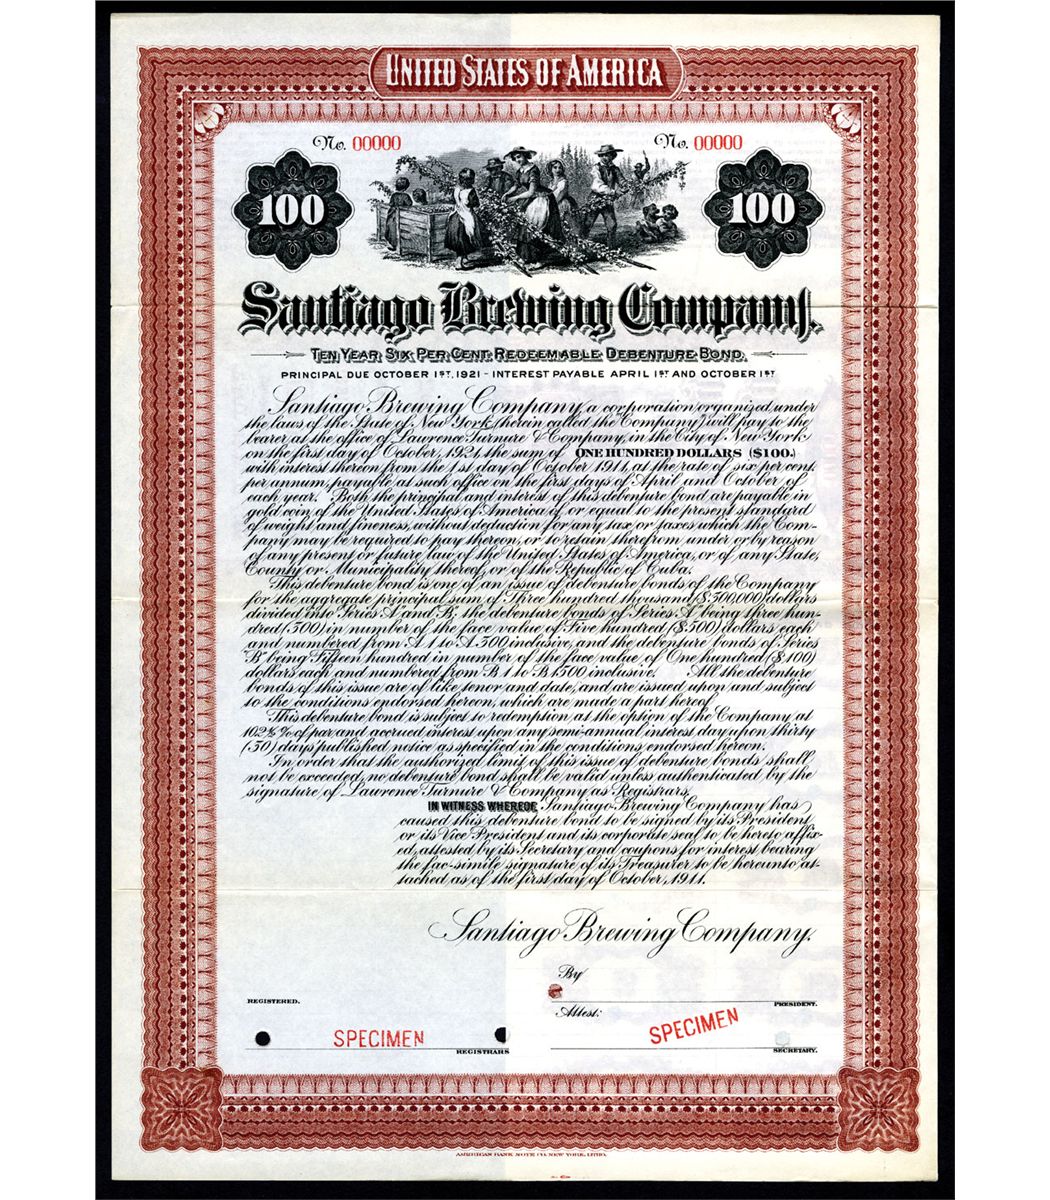 UNITED STATES OF AMERICA
No. 00000
No. 00000
100
100
Santiago Brewing Company.
TEN YEAR SIX PER CENT. REDEEMABLE DEBENTURE BOND.
PRINCIPAL DUE OCTOBER 1ST, 1921 - INTEREST PAYABLE APRIL 1ST AND OCTOBER 1ST
Santiago Brewing Company, a corporation organized under
the laws of the State of New York (herein called the Company) will pay to the
bearer at the office of Lawrence Turnure & Company, in the City of New York
on the first day of October, 1921, the sum of ONE HUNDRED DOLLARS ($100.)
with interest thereon from the 1st day of October 1911, at the rate of six per cent.
per annum, payable at such office on the first days of April and October of
each year. Both the principal and interest of this debenture bond are payable in
gold coin of the United States of America of or equal to the present standard
of weight and fineness, without deduction for any tax or taxes which the Com-
pany may be required to pay thereon, or to retain therefrom under or by reason
of any present or future law of the United States of America, or of any State,
County or Municipality thereof, or of the Republic of Cuba.
This debenture bond is one of an issue of debenture bonds of the Company
for the aggregate principal sum of Three hundred thousand ($300,000) dollars
divided into Series A and B, the debenture bonds of Series A being three hun-
dred (300) in number of the face value of Five hundred ($500) dollars each
and numbered from A 1 to A 300 inclusive, and the debenture bonds of Series
B being Fifteen hundred in number of the face value of One hundred ($100)
dollars each and numbered from B 1 to B 1500 inclusive. All the debenture
bonds of this issue are of like tenor and date, and are issued upon and subject
to the conditions endorsed hereon, which are made a part hereof.
This debenture bond is subject to redemption, at the option of the Company at
102½% of par and accrued interest upon any semi-annual interest day upon thirty
(30) days published notice as specified in the conditions endorsed hereon.
In order that the authorized limit of this issue of debenture bonds shall
not be exceeded, no debenture bond shall be valid unless authenticated by the
signature of Lawrence Turnure & Company as Registrars.
IN WITNESS WHEREOF, Santiago Brewing Company has
caused this debenture bond to be signed by its President
or its Vice President and its corporate seal to be hereto affix-
ed, attested by its Secretary and coupons for interest bearing
the fac-simile signature of its Treasurer, to be hereunto at-
tached, as of the first day of October, 1911.
Santiago Brewing Company.
By
REGISTERED.
PRESIDENT.
Attest:
SPECIMEN
SPECIMEN
REGISTRARS
SECRETARY.
AMERICAN BANK NOTE CO. NEW YORK, 1910.